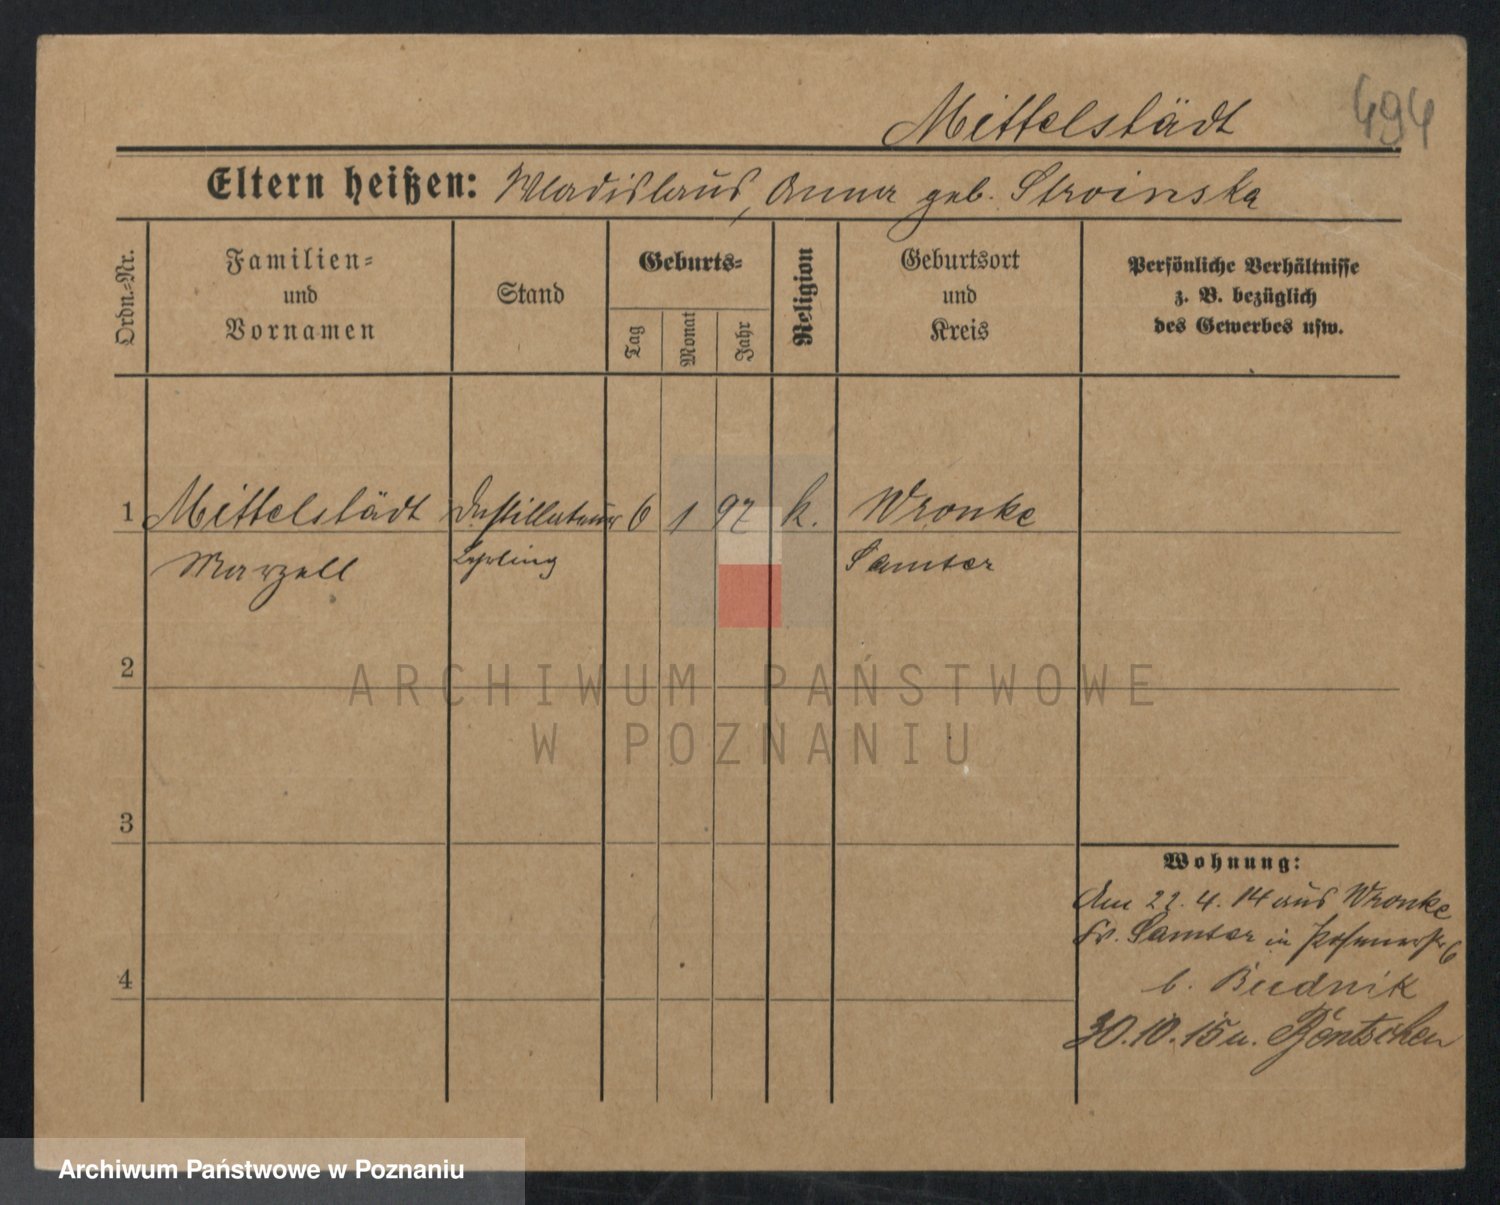 Mittelstädt 494
Eltern heißen: Wladislaus, Anna geb. Stroinska
Ordn.-Nr.
Familien-
und
Vornamen
Stand
Geburts-
Tag
Monat
Jahr
Religion
Geburtsort
und
Kreis
Persönliche Verhältnisse
z. B. bezüglich
des Gewerbes usw.
1 Mittelstädt Destillateur 6 1 97 k. Wronke
Marzell Lehrling Samter
2
ARCHIWUM PAŃSTWOWE
W POZNANIU
3
Wohnung:
Am 22. 4. 14 aus Wronke
Kr. Samter in Posenerstr 6
b. Budnik
4
30.10.15 n. Bentschen
Archiwum Państwowe w Poznaniu